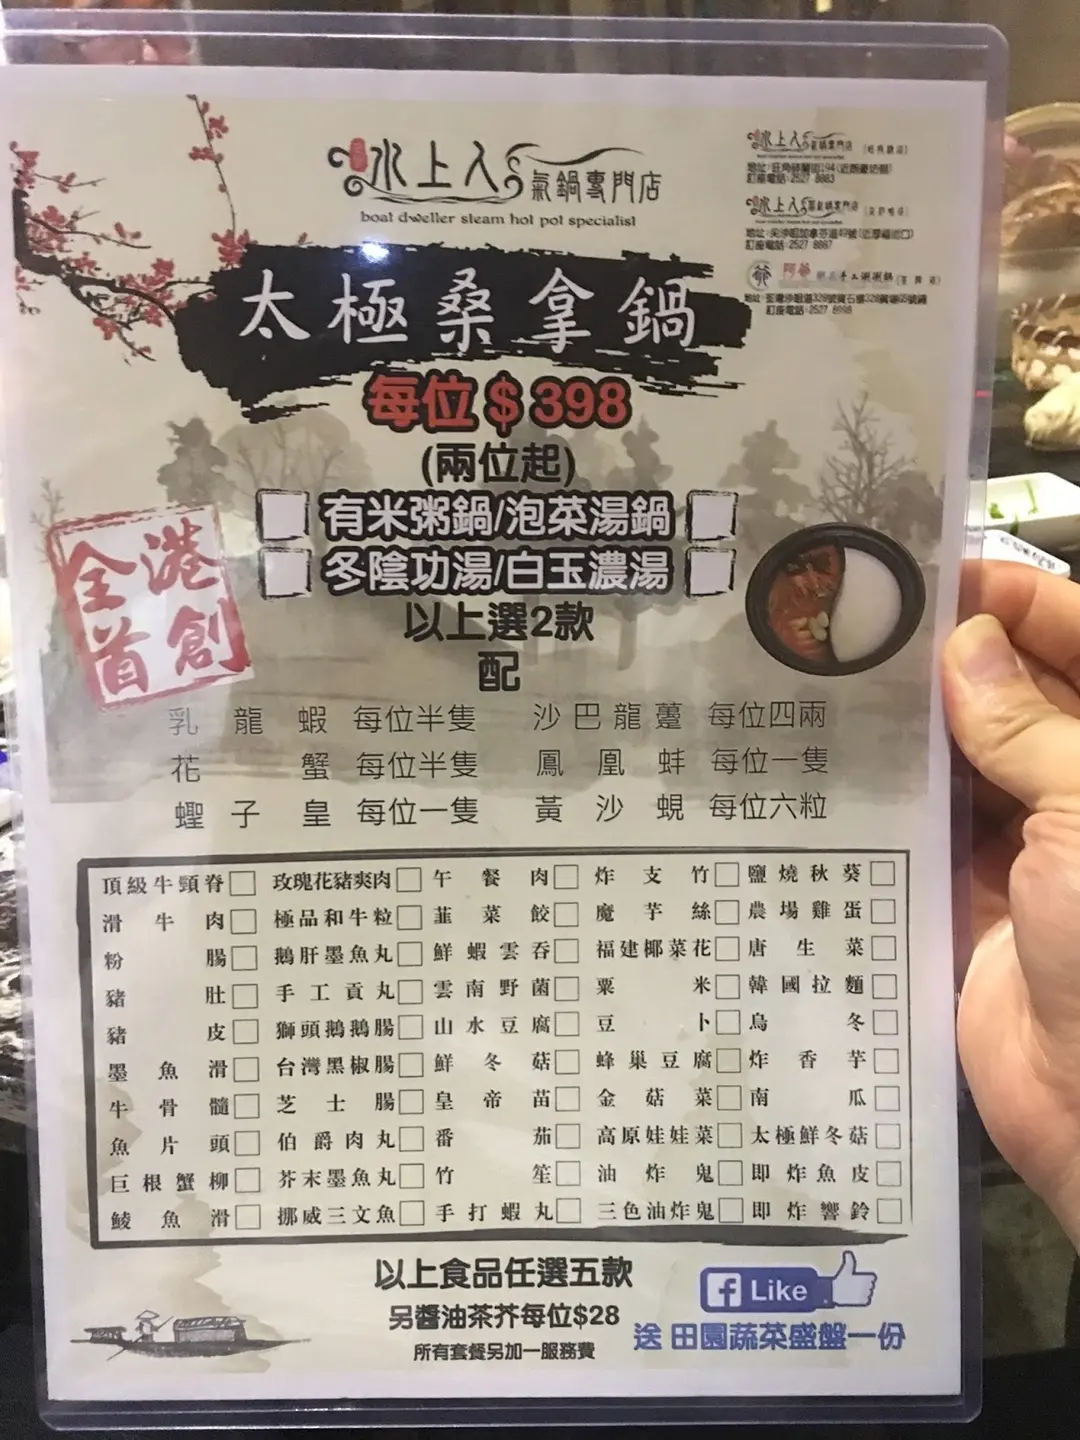 水上人氣鍋專門店
boat dweller steam hot pot specialist
水上人氣鍋專門店
地址:旺角砵蘭街194(近朗豪坊側)
訂座電話:2527 8883
水上人
訂座電話:2527 8887
阿爺
訂座電話:2527 8998
太極桑拿鍋
每位$398
(兩位起)
有米粥鍋/泡菜湯鍋
冬陰功湯/白玉濃湯
以上選2款
配
全港首創
乳龍蝦 每位半隻 沙巴龍躉 每位四兩
花蟹 每位半隻 鳳凰蚌 每位一隻
蟶子皇 每位一隻 黃沙蜆 每位六粒
頂級牛頸脊 玫瑰花豬爽肉 午餐肉 炸支竹 鹽燒秋葵
滑牛肉 極品和牛粒 韮菜餃 魔芋絲 農場雞蛋
粉腸 鵝肝墨魚丸 鮮蝦雲吞 福建椰菜花 唐生菜
豬肚 手工貢丸 雲南野菌 粟米 韓國拉麵
豬皮 獅頭鵝鵝腸 山水豆腐 豆卜 烏冬
墨魚滑 台灣黑椒腸 鮮冬菇 蜂巢豆腐 炸香芋
牛骨髓 芝士腸 皇帝苗 金菇菜 南瓜
魚片頭 伯爵肉丸 番茄 高原娃娃菜 太極鮮冬菇
巨根蟹柳 芥末墨魚丸 竹笙 油炸鬼 即炸魚皮
鯪魚滑 挪威三文魚 手打蝦丸 三色油炸鬼 即炸響鈴
以上食品任選五款
另醬油茶芥每位$28
所有套餐另加一服務費
f Like
送 田園蔬菜盛盤一份